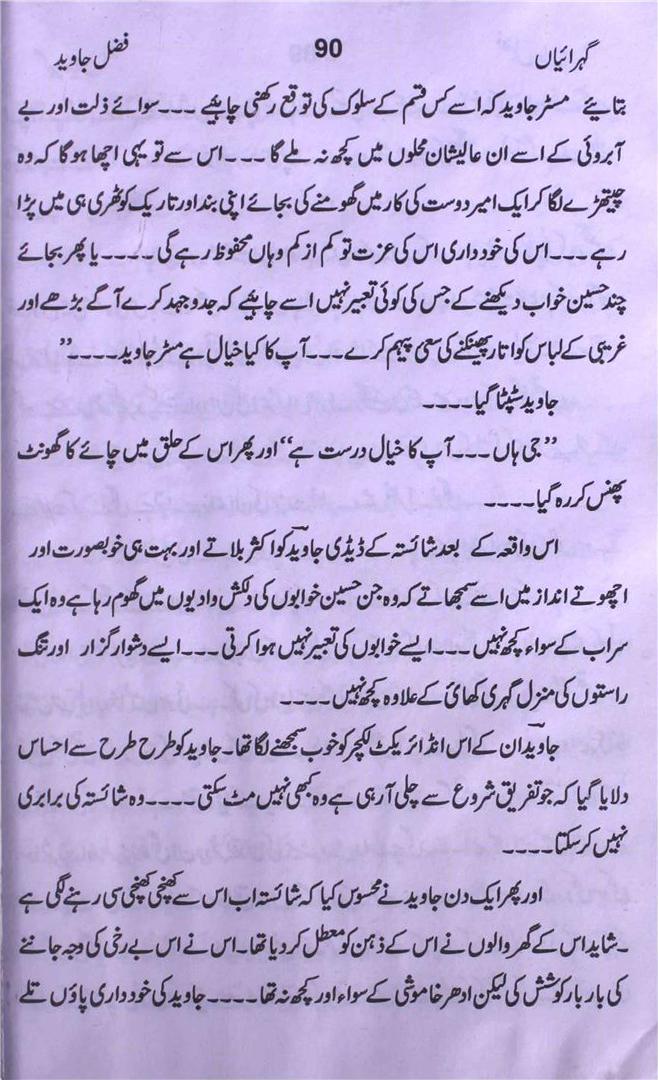 گہرائیاں 90 فضل جاوید
بتائیے مسٹر جاوید کہ اسے کس قسم کے سلوک کی توقع رکھنی چاہیے ۔۔۔سوائے ذلت اور بے
آبروئی کے اسے ان عالیشان محلوں میں کچھ نہ ملے گا ۔۔۔اس سے تو یہی اچھا ہوگا کہ وہ
چیتھڑے لگا کر ایک امیر دوست کی کار میں گھومنے کی بجائے اپنی بند اور تاریک کوٹھری ہی میں پڑا
رہے ۔۔۔اس کی خودداری اس کی عزت تو کم از کم وہاں محفوظ رہے گی ۔۔۔۔یا پھر بجائے
چند حسین خواب دیکھنے کے جس کی کوئی تعبیر نہیں اسے چاہیے کہ جدوجہد کرے آگے بڑھے اور
غریبی کے لباس کو اتار پھینکنے کی سعی پیہم کرے ۔۔۔آپ کا کیا خیال ہے مسٹر جاوید ۔۔۔۔"
جاوید سٹپٹا گیا ۔۔۔۔
"جی ہاں ۔۔۔آپ کا خیال درست ہے" اور پھر اس کے حلق میں چائے کا گھونٹ
پھنس کر رہ گیا ۔۔۔۔
اس واقعہ کے بعد شائستہ کے ڈیڈی جاوید کو اکثر بلاتے اور بہت ہی خوبصورت اور
اچھوتے انداز میں اسے سمجھاتے کہ وہ جن حسین خوابوں کی دلکش وادیوں میں گھوم رہا ہے وہ ایک
سراب کے سواء کچھ نہیں ۔۔۔ایسے خوابوں کی تعبیر نہیں ہوا کرتی ۔۔۔ایسے دشوار گزار اور تنگ
راستوں کی منزل گہری کھائی کے علاوہ کچھ نہیں ۔۔۔۔
جاوید ان کے اس انڈائریکٹ لکچر کو خوب سمجھنے لگا تھا۔ جاوید کو طرح طرح سے احساس
دلایا گیا کہ جو تفریق شروع سے چلی آ رہی ہے وہ کبھی نہیں مٹ سکتی ۔۔۔۔وہ شائستہ کی برابری
نہیں کر سکتا ۔۔۔۔
اور پھر ایک دن جاوید نے محسوس کیا کہ شائستہ اب اس سے کھنچی کھنچی سی رہنے لگی ہے
۔شاید اس کے گھر والوں نے اس کے ذہن کو معطل کر دیا تھا۔ اس نے اس بے رخی کی وجہ جاننے
کی بار بار کوشش کی لیکن ادھر خاموشی کے سواء اور کچھ نہ تھا ۔۔۔۔جاوید کی خودداری پاؤں تلے